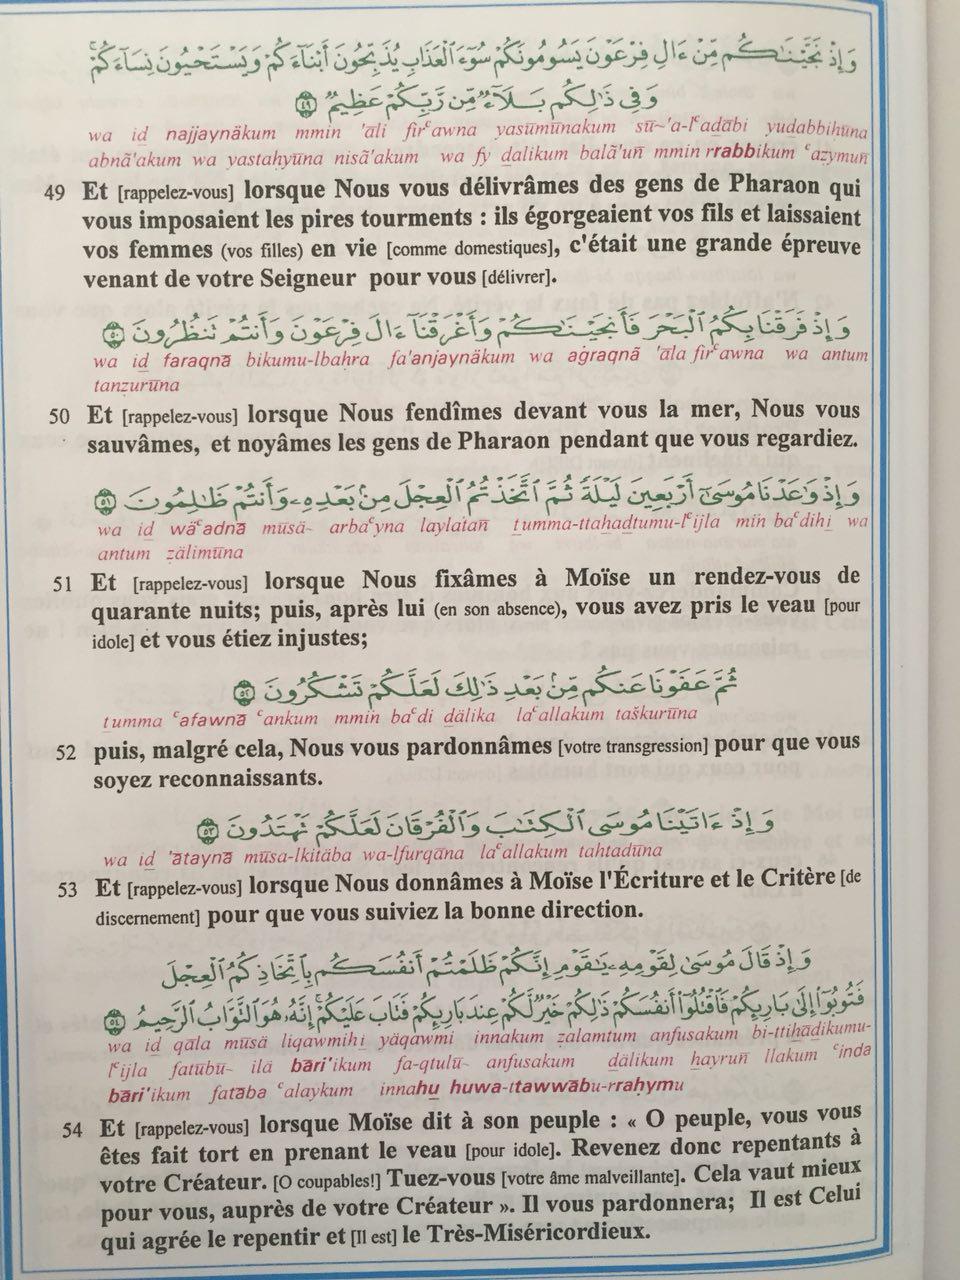 وَإِذْ نَجَّيْنَـٰكُم مِّنْ ءَالِ فِرْعَوْنَ يَسُومُونَكُمْ سُوٓءَ ٱلْعَذَابِ يُذَبِّحُونَ أَبْنَآءَكُمْ وَيَسْتَحْيُونَ نِسَآءَكُمْ ۚ
وَفِى ذَٰلِكُم بَلَآءٌ مِّن رَّبِّكُمْ عَظِيمٌ ٤٩
wa id̲ najjaynäkum mmin 'āli firᶜawna yasūmūnakum sū~'a-lᶜad̲ābi yud̲abbiḥūna
abnā̃'akum wa yastaḥyūna nisā̃'akum wa fy d̲älikum balā̃'uñ mmin rrabbikum ᶜaẓymuñ
49 Et [rappelez-vous] lorsque Nous vous délivrâmes des gens de Pharaon qui
vous imposaient les pires tourments : ils égorgeaient vos fils et laissaient
vos femmes (vos filles) en vie [comme domestiques], c'était une grande épreuve
venant de votre Seigneur pour vous [délivrer].
وَإِذْ فَرَقْنَا بِكُمُ ٱلْبَحْرَ فَأَنجَيْنَـٰكُمْ وَأَغْرَقْنَآ ءَالَ فِرْعَوْنَ وَأَنتُمْ تَنظُرُونَ ٥٠
wa id̲ faraqnā bikumu-lbaḥra fa'anjaynäkum wa aġraqnã 'āla firᶜawna wa antum
tanẓurūna
50 Et [rappelez-vous] lorsque Nous fendîmes devant vous la mer, Nous vous
sauvâmes, et noyâmes les gens de Pharaon pendant que vous regardiez.
وَإِذْ وَٰعَدْنَا مُوسَىٰٓ أَرْبَعِينَ لَيْلَةً ثُمَّ ٱتَّخَذْتُمُ ٱلْعِجْلَ مِنۢ بَعْدِهِۦ وَأَنتُمْ ظَـٰلِمُونَ ٥١
wa id̲ wäᶜadnā mūsä~ arbaᶜyna laylatañ t̲umma-ttah̲ad̲tumu-lᶜijla min baᶜdihi̲ wa
antum ẓälimūna
51 Et [rappelez-vous] lorsque Nous fixâmes à Moïse un rendez-vous de
quarante nuits; puis, après lui (en son absence), vous avez pris le veau [pour
idole] et vous étiez injustes;
ثُمَّ عَفَوْنَا عَنكُم مِّنۢ بَعْدِ ذَٰلِكَ لَعَلَّكُمْ تَشْكُرُونَ ٥٢
t̲umma ᶜafawnā ᶜankum mmin baᶜdi d̲älika laᶜallakum taškurūna
52 puis, malgré cela, Nous vous pardonnâmes [votre transgression] pour que vous
soyez reconnaissants.
وَإِذْ ءَاتَيْنَا مُوسَى ٱلْكِتَـٰبَ وَٱلْفُرْقَانَ لَعَلَّكُمْ تَهْتَدُونَ ٥٣
wa id̲ 'ātaynā mūsa-lkitäba wa-lfurqāna laᶜallakum tahtadūna
53 Et [rappelez-vous] lorsque Nous donnâmes à Moïse l'Écriture et le Critère [de
discernement] pour que vous suiviez la bonne direction.
وَإِذْ قَالَ مُوسَىٰ لِقَوْمِهِۦ يَـٰقَوْمِ إِنَّكُمْ ظَلَمْتُمْ أَنفُسَكُم بِٱتِّخَاذِكُمُ ٱلْعِجْلَ
فَتُوبُوٓا۟ إِلَىٰ بَارِئِكُمْ فَٱقْتُلُوٓا۟ أَنفُسَكُمْ ذَٰلِكُمْ خَيْرٌ لَّكُمْ عِندَ بَارِئِكُمْ فَتَابَ عَلَيْكُمْ ۚ إِنَّهُۥ هُوَ ٱلتَّوَّابُ ٱلرَّحِيمُ ٥٤
wa id̲ qāla mūsä liqawmihi̲ yäqawmi innakum ẓalamtum anfusakum bi-ttih̲ād̲ikumu-
lᶜijla fatūbū~ ilä bāri'ikum fa-qtulū~ anfusakum d̲älikum h̲ayruñ llakum ᶜinda
bāri'ikum fatāba ᶜalaykum innahu̲ huwa-ttawwābu-rraḥymu
54 Et [rappelez-vous] lorsque Moïse dit à son peuple : « O peuple, vous vous
êtes fait tort en prenant le veau [pour idole]. Revenez donc repentants à
votre Créateur. [O coupables!] Tuez-vous [votre âme malveillante]. Cela vaut mieux
pour vous, auprès de votre Créateur ». Il vous pardonnera; Il est Celui
qui agrée le repentir et [Il est] le Très-Miséricordieux.